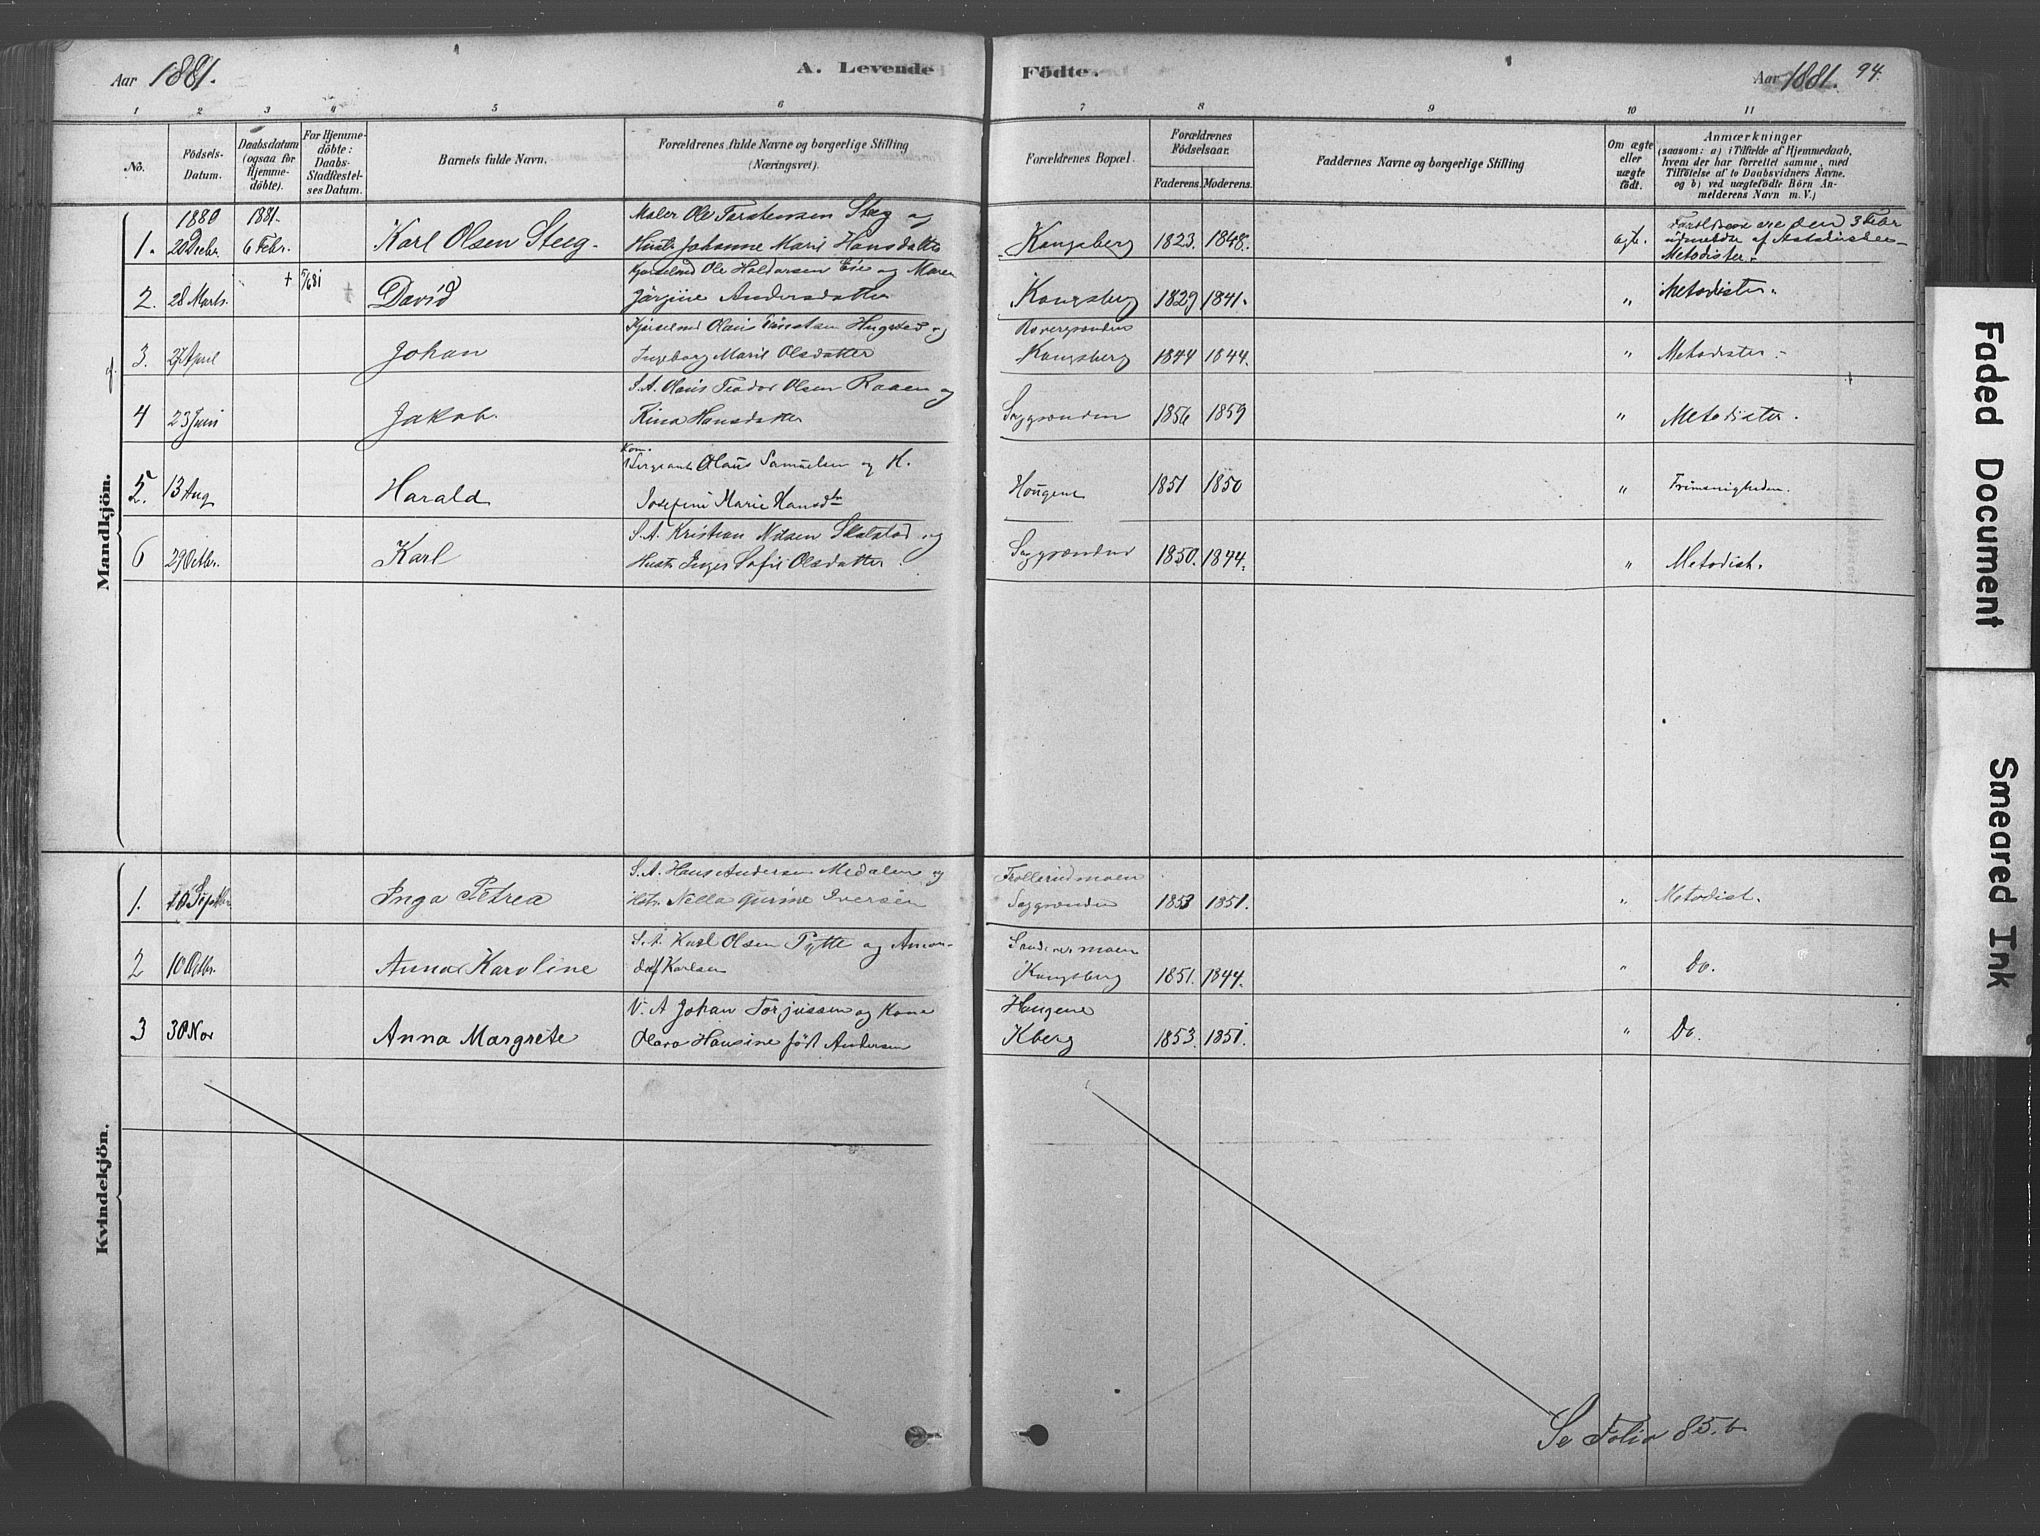 Aar 1881.
A. Levende
Födte.
Aar 1881. 94.
1 2 3 4 5 6 7 8 9 10 11
No.
Födsels-Datum.
Daabsdatum (ogsaa for Hjemme-döbte).
For Hjemme-döbte: Daabs-Stadfæstel-ses Datum.
Barnets fulde Navn.
Forældrenes fulde Navne og borgerlige Stilling (Næringsvei).
Forældrenes Bopæl.
Forældrenes Födselsaar.
Faderens. Moderens.
Faddernes Navne og borgerlige Stilling
Om ægte eller uægte födt.
Anmærkninger
(saasom: a) i Tilfælde af Hjemmedaab,
hvem der har forrettet samme, med
Tilföielse af to Daabsvidners Navne,
og b) ved uægtefödte Börn An-
melderens Navn m. V.)
Mandkjön.
1880 1881. Maler Ole Torstensen Steg og
1. 20 Decbr. 6 Febr. Karl Olsen Steeg. Hustr. Johanne Marie Hansdatter Kongsberg 1823. 1848. ægte. Forældrene ere den 3 Febr
udmeldte af Statskirken
Metodister.
+ 5/6 81 + Ole Haldorsen Eie og Maren
2. 28 Marts. David Jörgine Andersdatter Kongsberg 1829 1841. " Metodister.
Olaus Hugsted og
3. 27 April Johan Ingeborg Marie Olsdatter Kongsberg 1844 1844. " Metodister.
S.A. Olaus Teodor Olsen Raaen og
4 23 Juni Jakob. Rina Hansdatter Saggrenden 1856 1859 " Metodister.
Sergeant Olaus Samuelsen og H.
5. 13 Aug Harald Josefine Marie Hansdtr Hougene 1851 1850 "
S.A. Kristian Nilsen Skalstad og
6 29 Octbr. Karl Hustr. Inger Sofie Olsdatter. Saggrenden 1850. 1844. " Metodist.
Kvindekjön.
S.A. Hans Andersen Medalen og Trollerudmoen
1. 10 Septbr Inga Petrea Hstr. Nella Gurine Iversen Saggrenden 1853 1851. " Metodist.
S.A. Karl Olsen Pytte og Aman-
2 10 Octbr. Anna Karoline da f Karlsen Kongsberg 1851. 1844. " Do.
V.A Johan Torjussen og Kone Hougene
3 30 Nov Anna Margrete Olava Hansine født Andersen Kberg 1853. 1851. " Do.
Se Folio 85.b
Faded Document
Smeared Ink